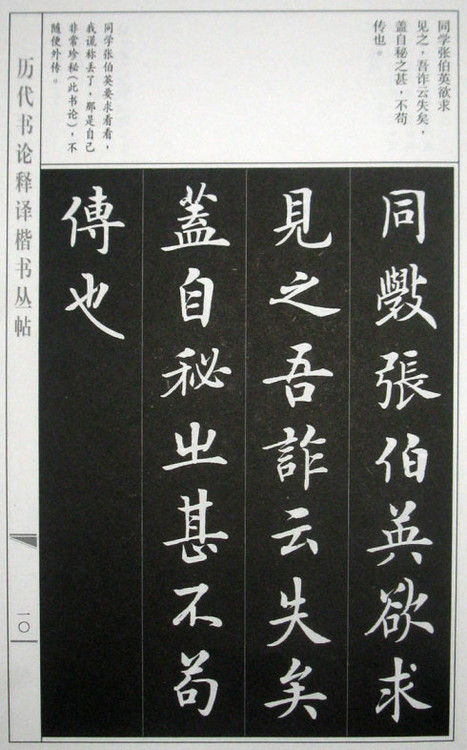 同学张伯英欲求
见之，吾诈云失矣，
盖自秘之甚，不苟
传也。
同学张伯英要求看看，
我谎称丢了。那是自己
非常珍秘（此书论），不
随便外传。
同學張伯英欲求
見之吾詐云失矣
蓋自秘之甚不苟
傳也
历代书论释译楷书丛帖
一〇